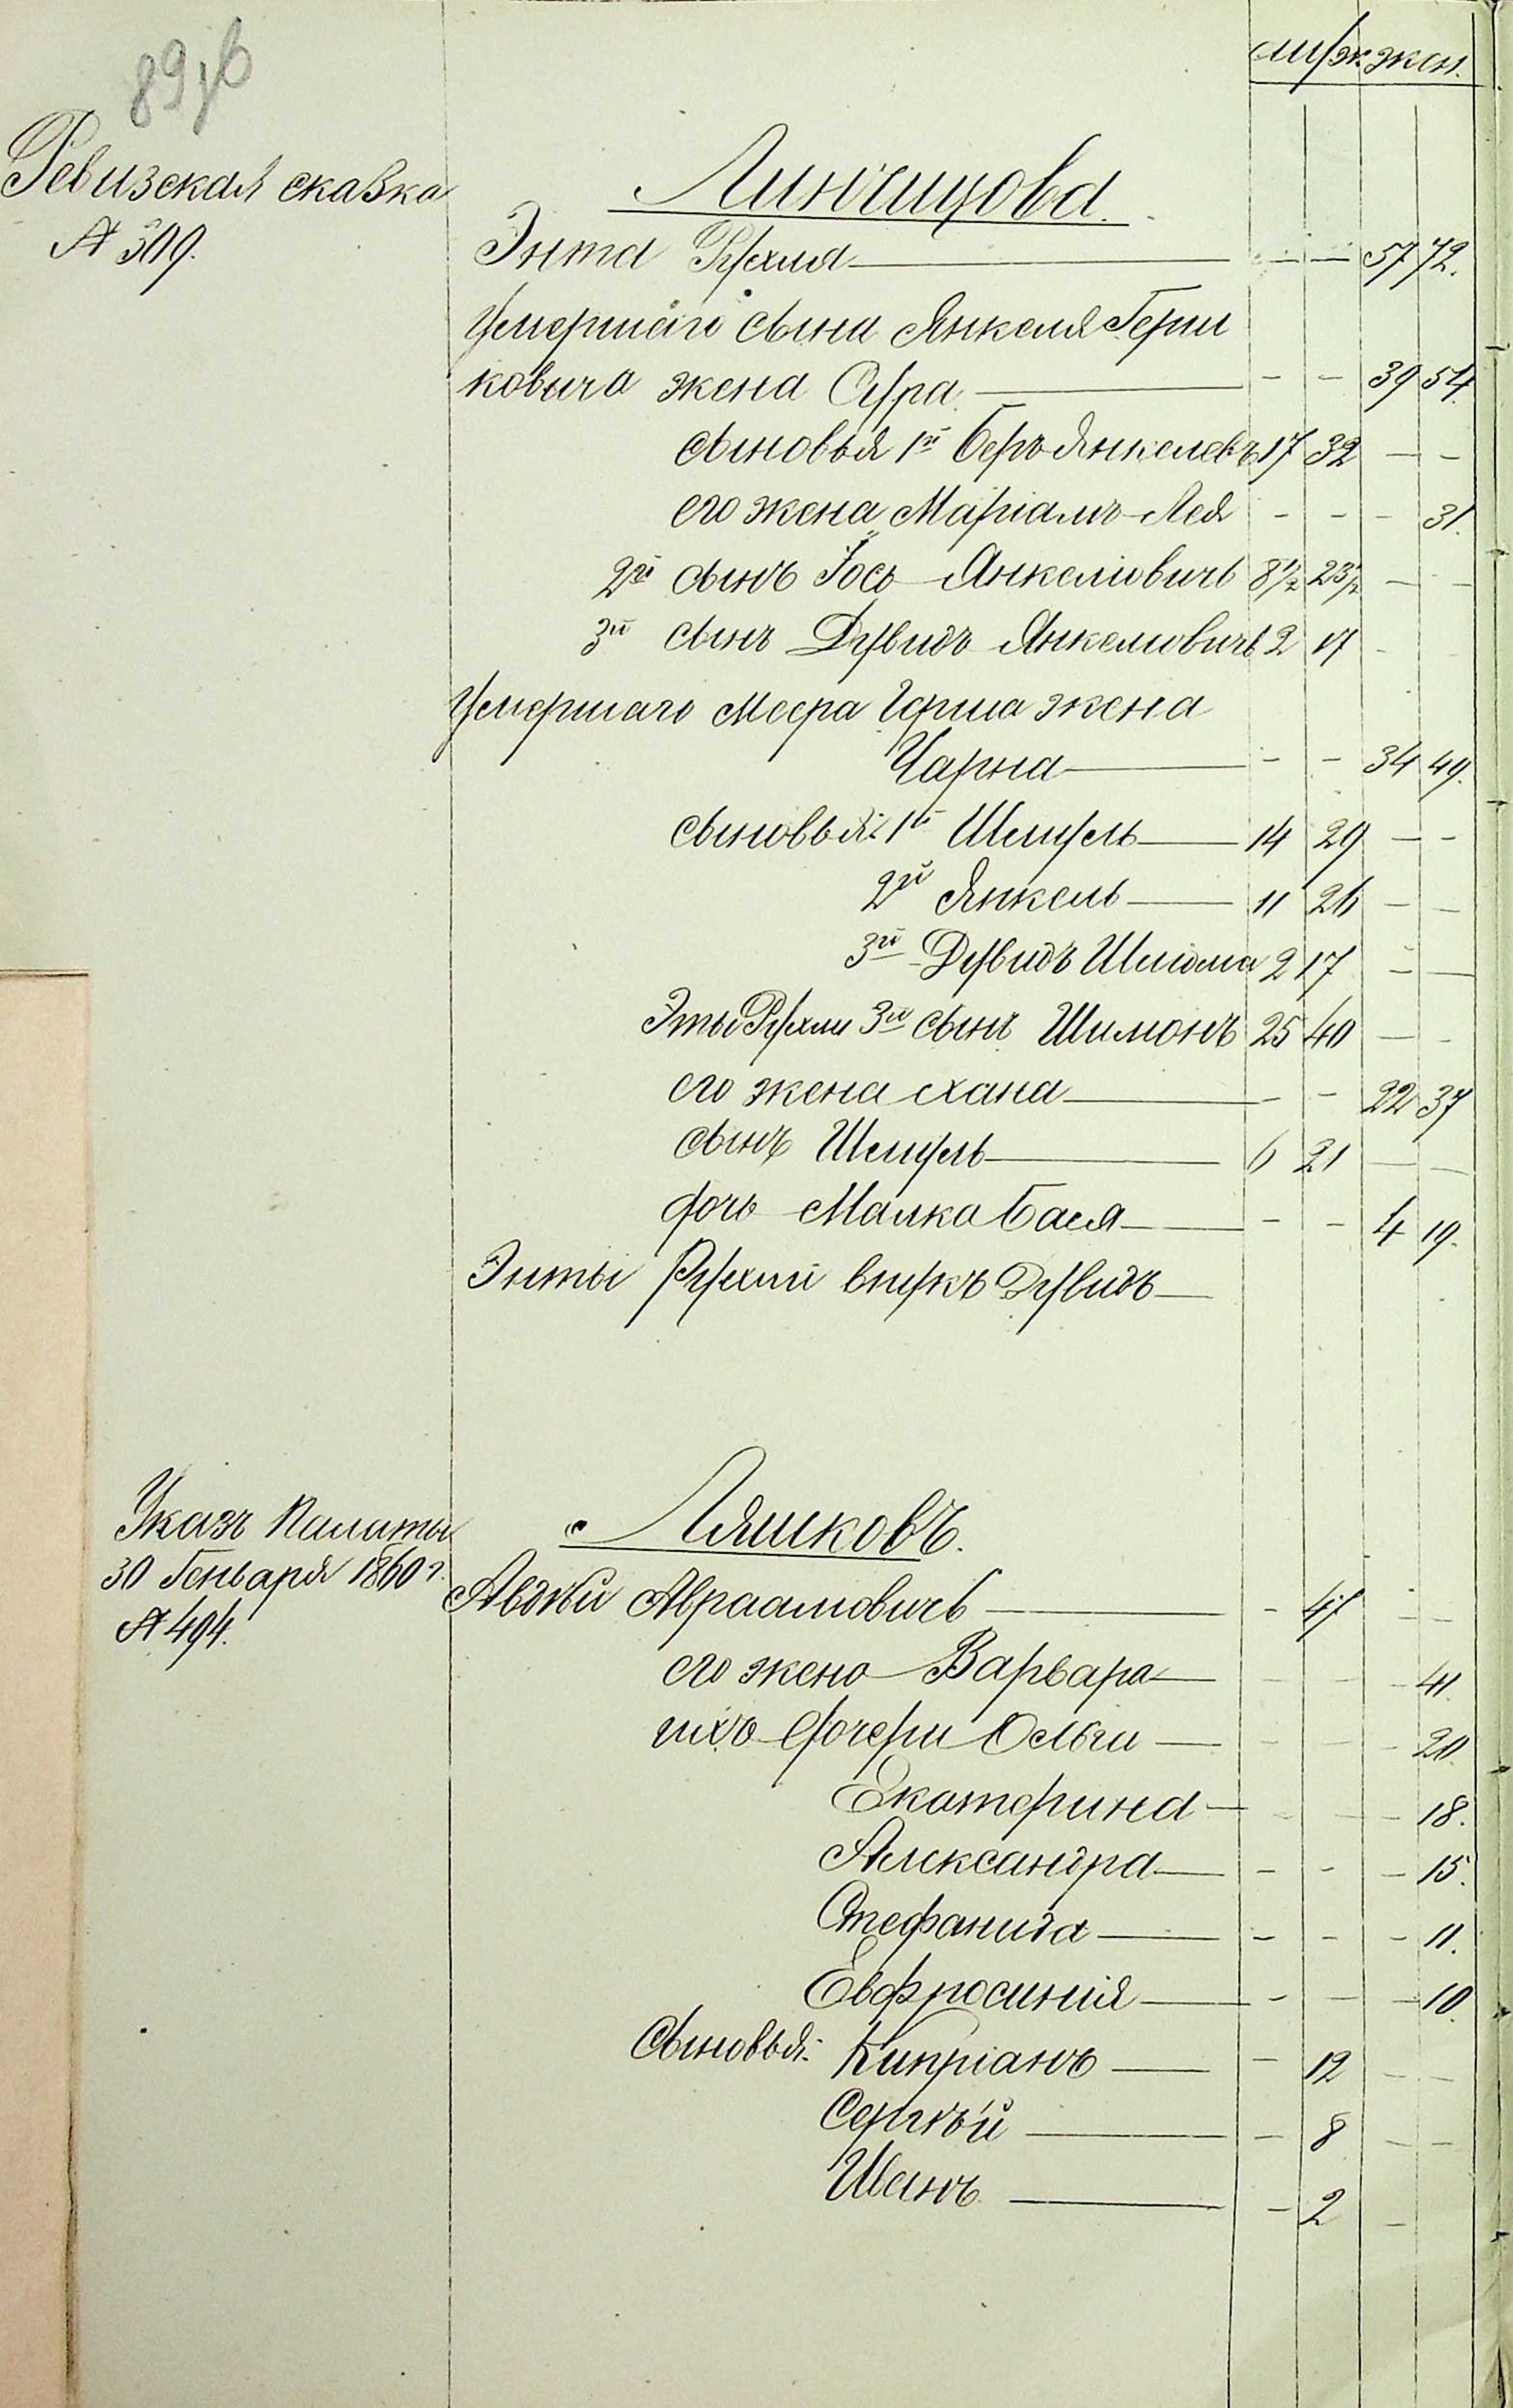 муж. жен.
Ревизская сказка
№ 309.
Линчицова.
Энта Рухля — — — 57 72.
Умершаго сына Янкеля Герш
ковича жена Сура — — — 39 54.
сыновья 1й Беръ Янкелевъ 17 32 — —
его жена Маріамъ-Лея — — — 31.
2й сынъ Іось Янкеліовичъ 8½ 23½ — —
3й сынъ Дувидъ Янкеліовичъ 2 17 - -
Умершаго Меера Герша жена
Чарна — — — 34 49.
сыновья: 1й Шмуель — 14 29 — —
2й Янкель — 11 26 — —
3й Дувидъ Шліома 2 17 — —
Эты Рухли 3й сынъ Шимонъ 25 40 — -
его жена Хана — — — 22 37
сынъ Шмуель — 6 21 — —
дочь Малка Бася — — — 4 19.
Энты Рухли внукъ Дувидъ —
Указъ Палаты
30 Генваря 1860 г.
№ 494.
Ляшковъ.
Авдѣй Авраамовичъ — - 47 - —
его жена Варвара — — — - 41.
ихъ дочери Ольги — — — - 20.
Екатерина — - — - 18.
Александра — - - — 15.
Стефанида — - - - 11.
Евфросинія — - — — 10.
Сыновья: Кипріанъ — — 12 - —
Сергѣй — — 8 — —
Иванъ — — 2 —